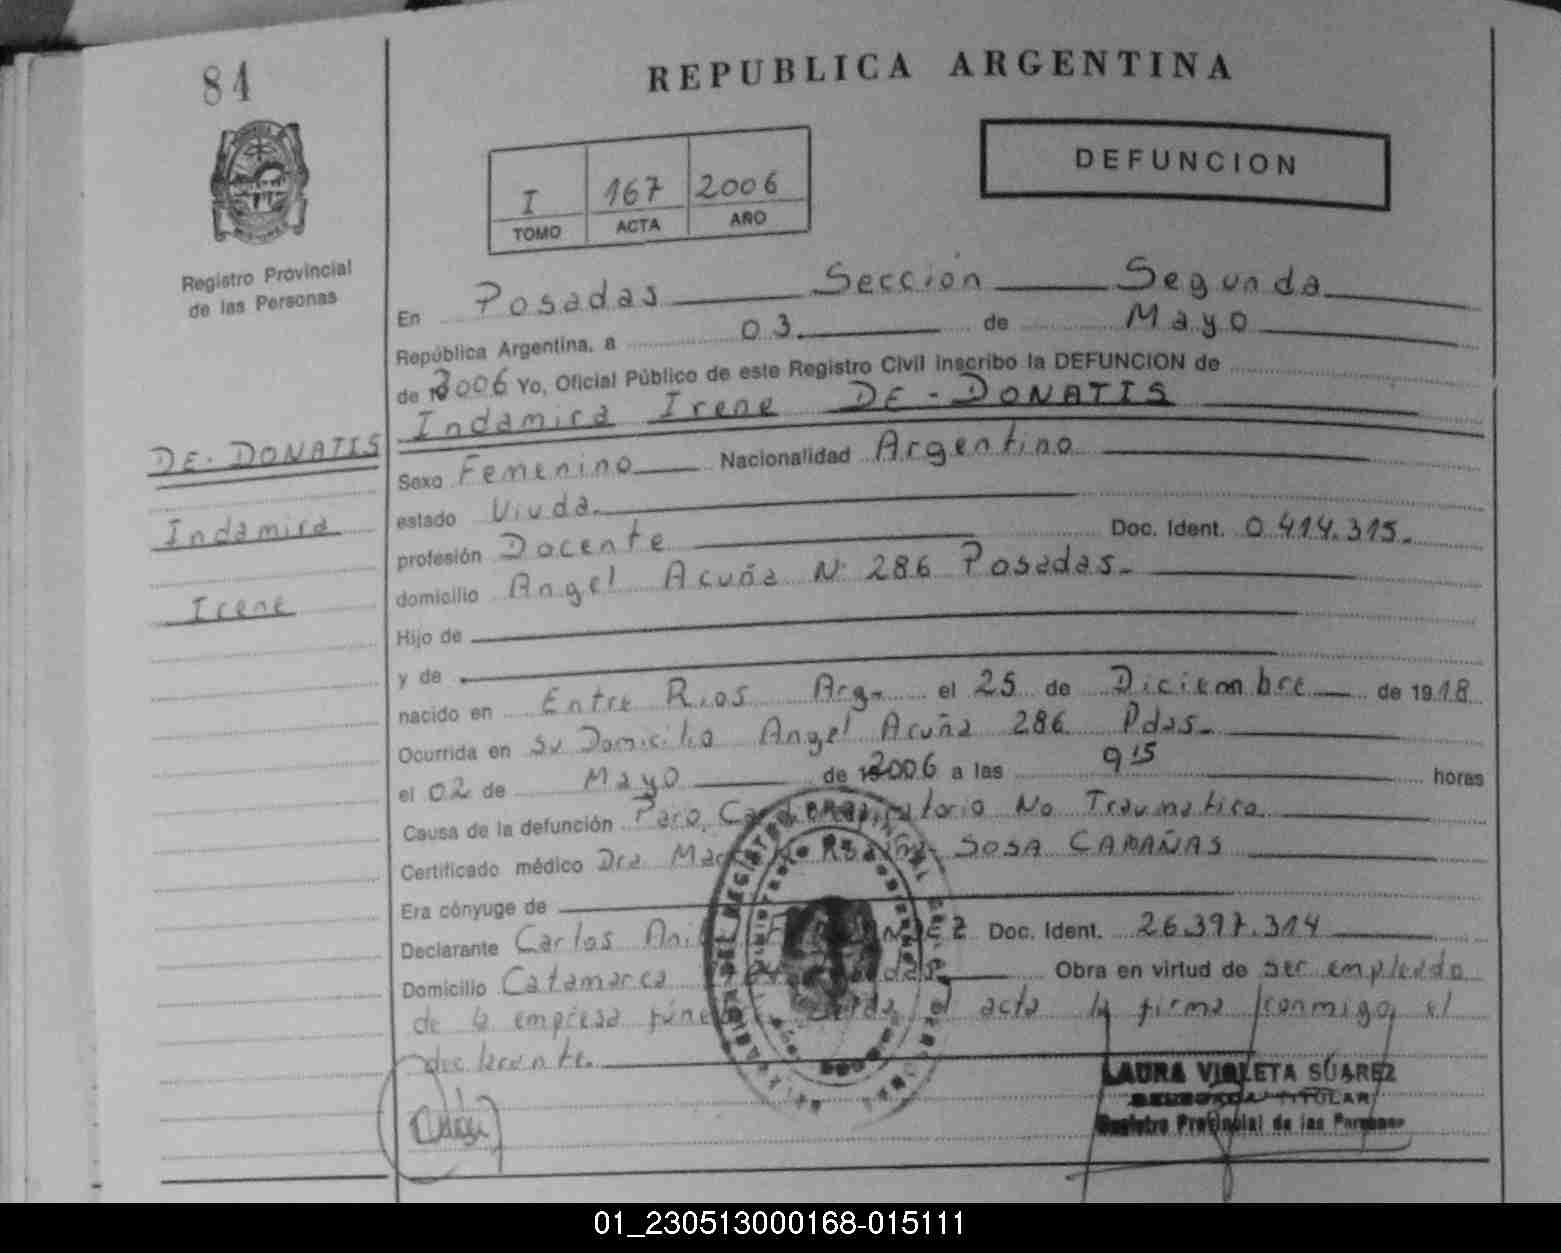 84
REPUBLICA ARGENTINA
DEFUNCION
I 167 2006
TOMO ACTA AÑO
Registro Provincial
de las Personas
En Posadas Sección Segunda
República Argentina, a 03 de Mayo
de 2006 Yo, Oficial Público de este Registro Civil inscribo la DEFUNCION de
Indamira Irene DE-DONATIS
DE-DONATIS
Indamira
Irene
Sexo Femenino Nacionalidad Argentino
estado Viuda.
profesión Docente Doc. Ident. 0.414.315.
domicilio Angel Acuña Nº 286 Posadas.
Hijo de
y de
nacido en Entre Rios Arg. el 25 de Diciembre de 1918
Ocurrida en su Domicilio Angel Acuña 286 Pdas.
el 02 de Mayo de 2006 a las 9 15 horas
Causa de la defunción Paro No Traumatico
Certificado médico Dra. SOSA CAMAÑAS
Era cónyuge de
Declarante Carlos Doc. Ident. 26.397.314
Domicilio Catamarca Obra en virtud de ser empleado
de la empresa acta la firma conmigo el
declarante.
LAURA VIOLETA SUAREZ
TITULAR
Registro Provincial de las Personas
01_230513000168-015111